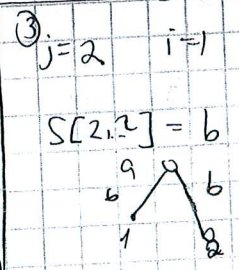 ③
j=2 i=1
S[2,2] = b
a
b b
1 2